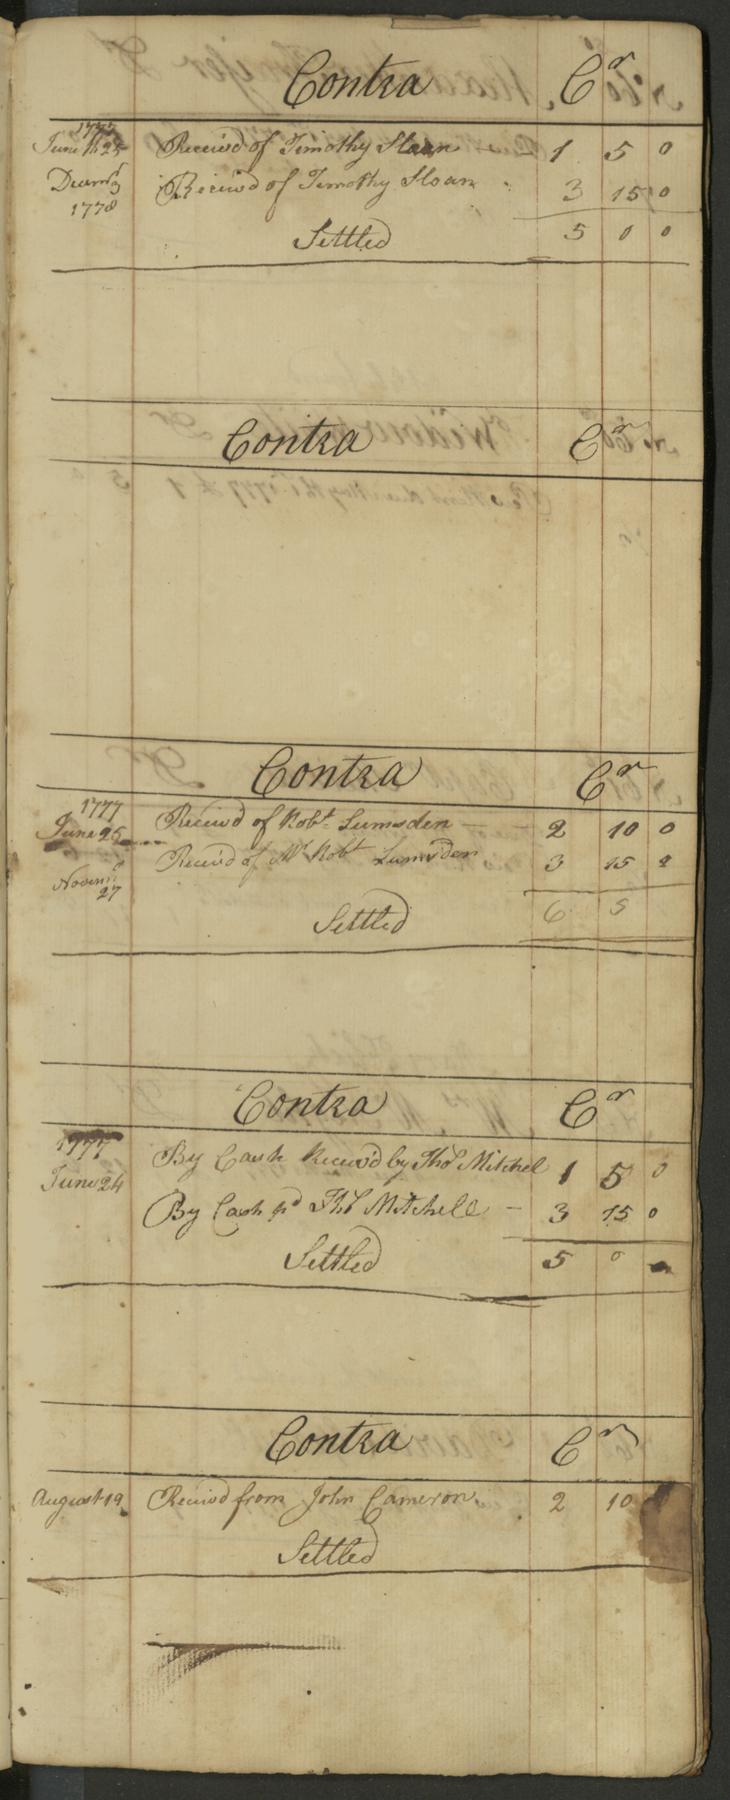 Contra Cr
1777
June th 25 Receivd of Timothy Sloan 1 5 0
Decemr 3 Receivd of Timothy Sloan 3 15 0
1778
Settled 5 0 0
Contra Cr
Contra Cr
1777
June 25 Receivd of Robt Lumsden 2 10 0
Receivd of Mr Robt Lumsden 3 15
Novemr
27
Settled 6 5
Contra Cr
1777
June 24 By Cash Receivd by Thos Mitchel 1 5 0
By Cash pd Thos Mitchell 3 15 0
Settled 5 0
Contra Cr
August 19 Receivd from John Cameron 2 10
Settled